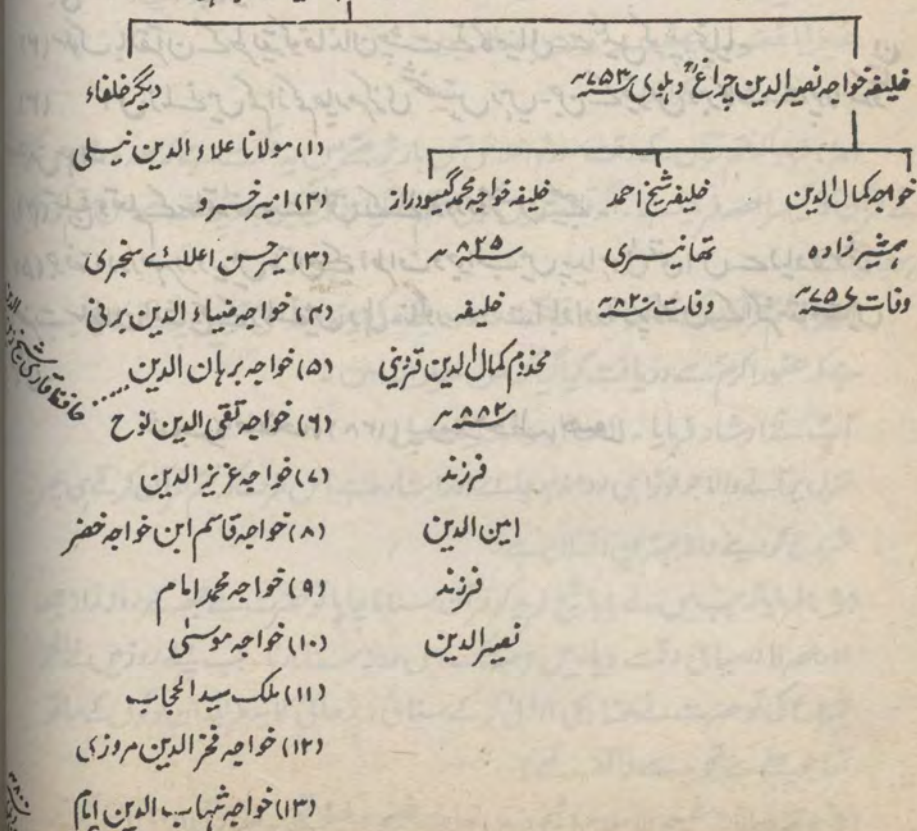 خلیفہ خواجہ نصیر الدین چراغؒ دہلوی ۷۵۳ھ
دیگر خلفاء
خواجہ کمال الدین
ہمشیر زادہ
وفات ۷۵۶ھ
خلیفہ شیخ احمد
تھانیسری
وفات ۸۲۰ھ
خلیفہ خواجہ محمد گیسودراز
۸۲۵ھ
خلیفہ
مخدوم کمال الدین قزوینی
۸۸۲ھ
فرزند
امین الدین
فرزند
نصیر الدین
(۱) مولانا علاء الدین نیلی
(۲) امیر خسرو
(۳) میر حسن اعلائے سنجری
(۴) خواجہ ضیاء الدین برنی
(۵) خواجہ برہان الدین
(۶) خواجہ تقی الدین نوح
(۷) خواجہ عزیز الدین
(۸) خواجہ قاسم ابن خواجہ خضر
(۹) خواجہ محمد امام
(۱۰) خواجہ موسیٰ
(۱۱) ملک سید الحجاب
(۱۲) خواجہ فخر الدین مروزی
(۱۳) خواجہ شہاب الدین امام